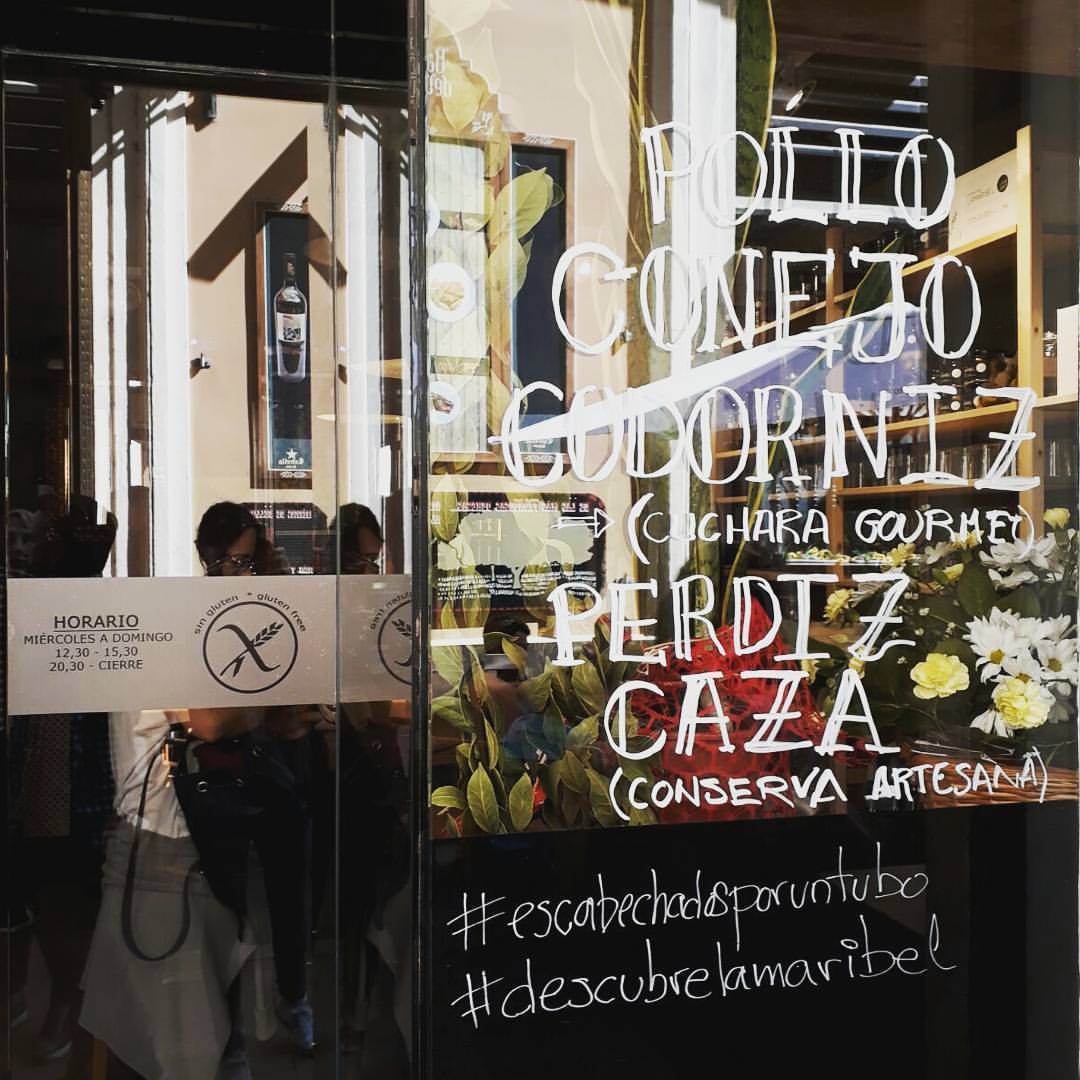 HORARIO
MIÉRCOLES A DOMINGO
12,30 - 15,30
20,30 - CIERRE
sin gluten - gluten free
POLLO
CONEJO
CODORNIZ
⇒ (CUCHARA GOURMET)
PERDIZ
CAZA
(CONSERVA ARTESANA)
#escabechadosporuntubo
#descubrelamaribel
Estrella